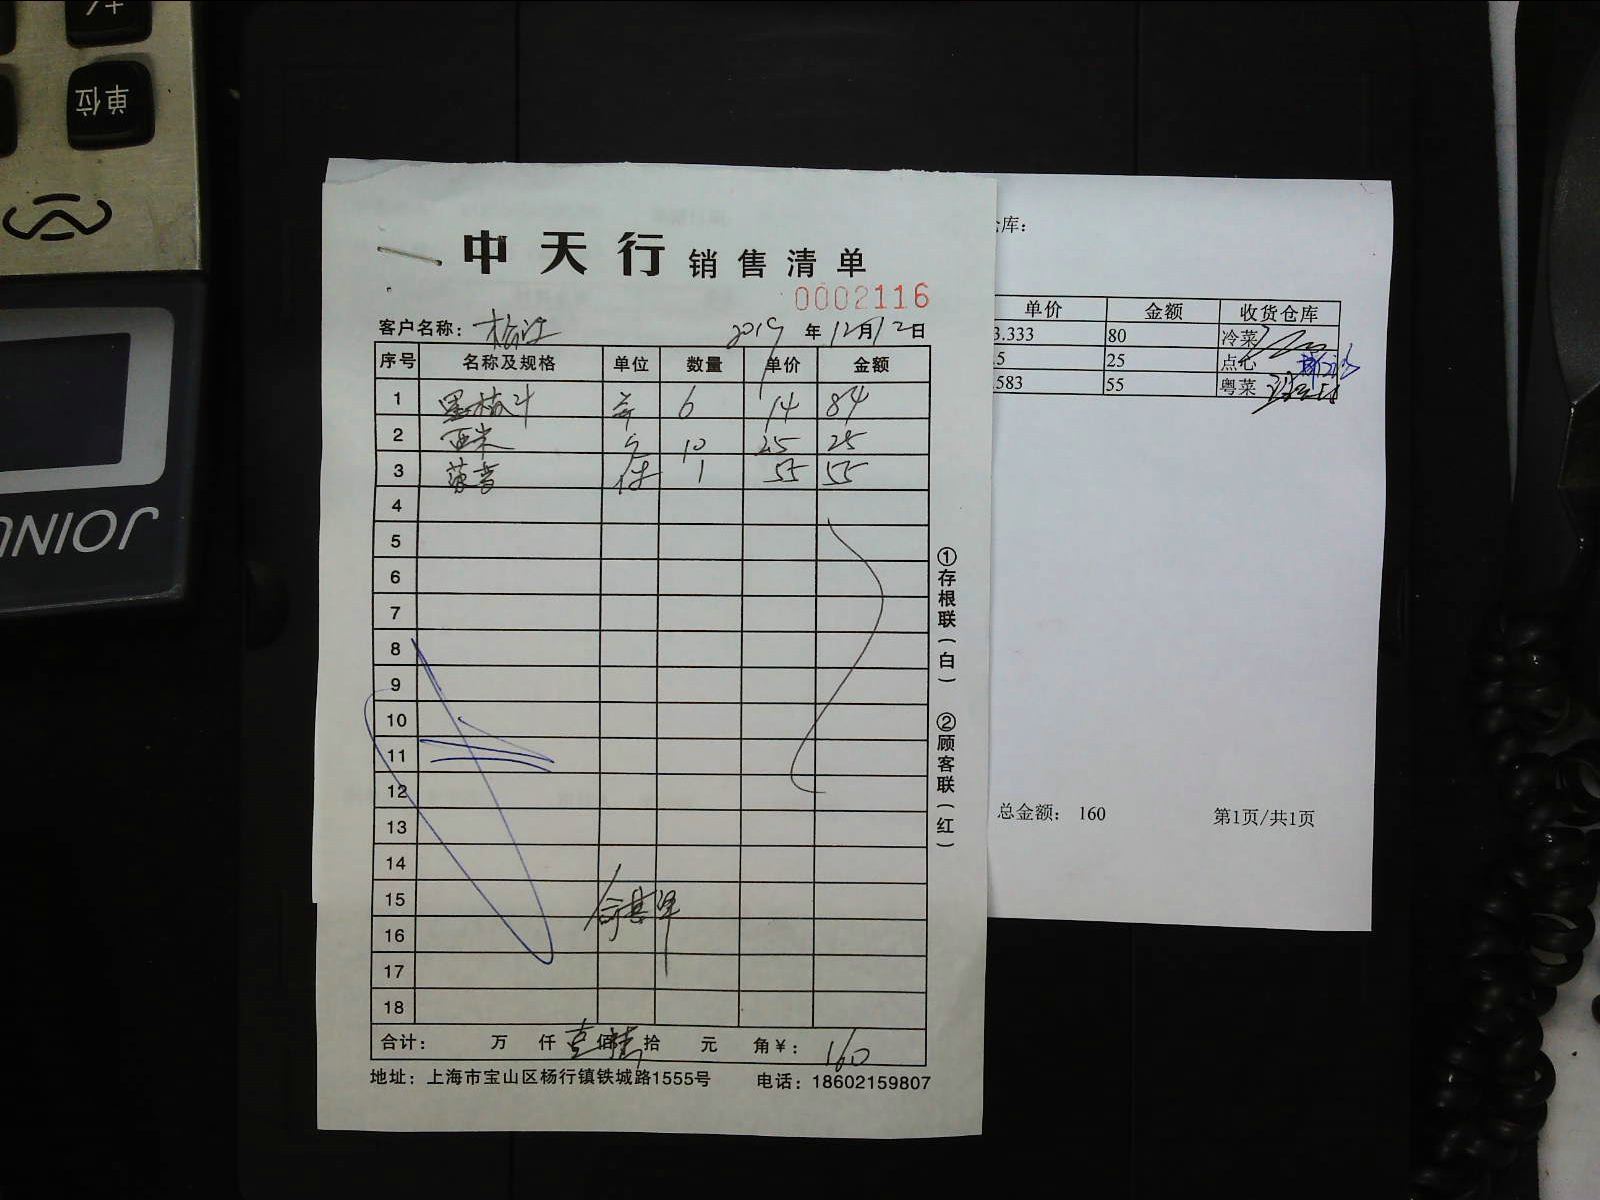 单位
JOINU
中天行 销售清单
0002116
客户名称： 2019 年 12 月 12 日
序号 名称及规格 单位 数量 单价 金额
1 6 14 84
2 西米 10 25 25
3 1 55 55
4
5
6
7
8
9
10
11
12
13
14
15
16
17
18
合计： 万 仟 壹 佰 陆 拾 元 角￥： 160
地址：上海市宝山区杨行镇铁城路1555号 电话：18602159807
①存根联（白） ②顾客联（红）
仓库：
单价 金额 收货仓库
3.333 80 冷菜
.5 25 点心
.583 55 粤菜
总金额： 160 第1页/共1页